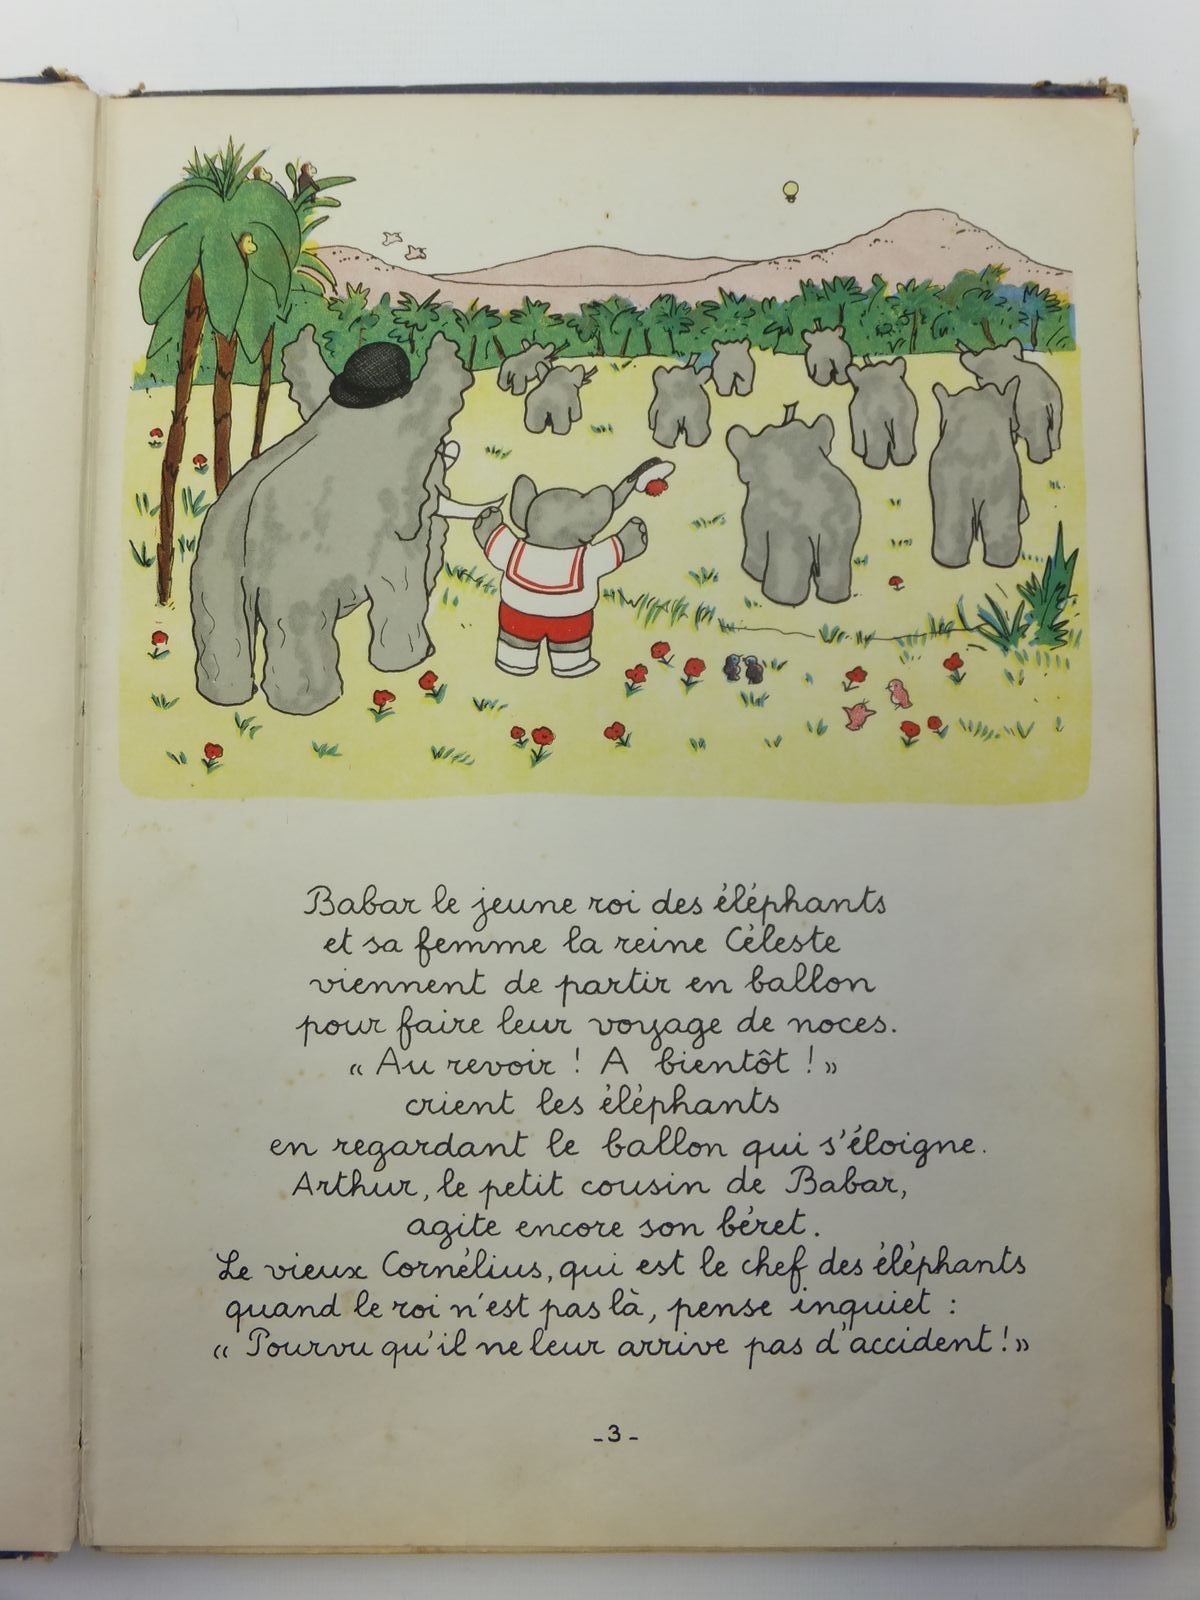 Babar le jeune roi des éléphants
et sa femme la reine Céleste
viennent de partir en ballon
pour faire leur voyage de noces.
« Au revoir ! A bientôt ! »
crient les éléphants
en regardant le ballon qui s'éloigne.
Arthur, le petit cousin de Babar,
agite encore son béret.
Le vieux Cornélius, qui est le chef des éléphants
quand le roi n'est pas là, pense inquiet :
« Pourvu qu'il ne leur arrive pas d'accident ! »
-3-